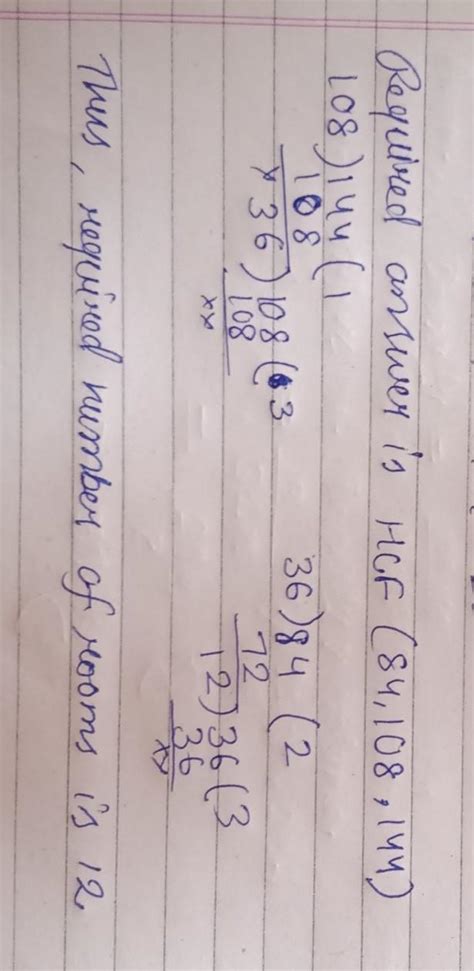 Required answer is HCF (84,108,144)
108)144(1
108
×36)108(3
108
××
36)84(2
72
12)36(3
36
××
Thus, required number of rooms is 12.